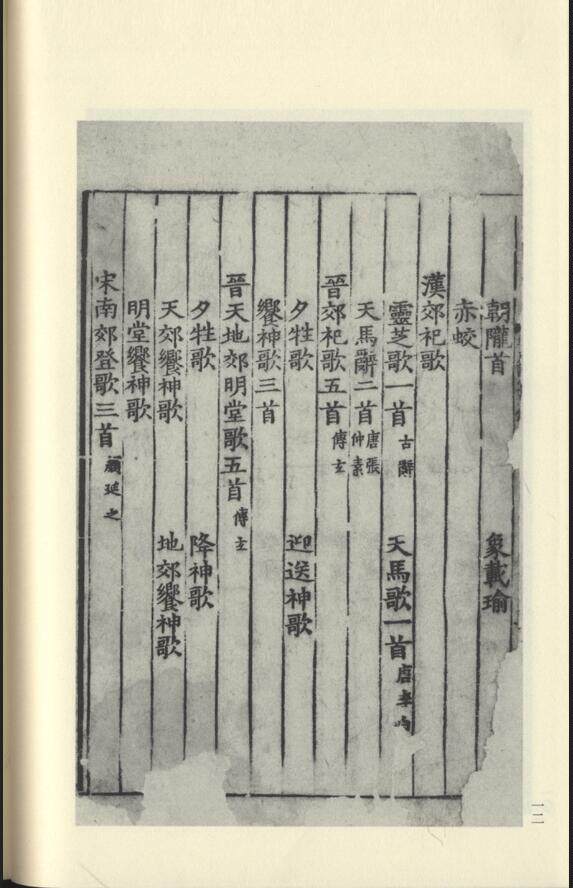 朝隴首 象載瑜
赤蛟
漢郊祀歌
靈芝歌一首 古辭 天馬歌一首 唐李
天馬辭二首 唐張仲素
晉郊祀歌五首 傅玄
夕牲歌 迎送神歌
饗神歌三首
晉天地郊明堂歌五首 傅玄
夕牲歌 降神歌
天郊饗神歌 地郊饗神歌
明堂饗神歌
宋南郊登歌三首 顏延之
一二